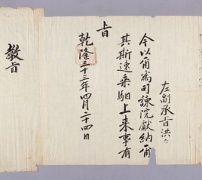 左副承旨洪
今以爾爲司諫院獻納爾
其斯速乘馹上來事有
旨
乾隆三十三年四月二十四日
敎旨